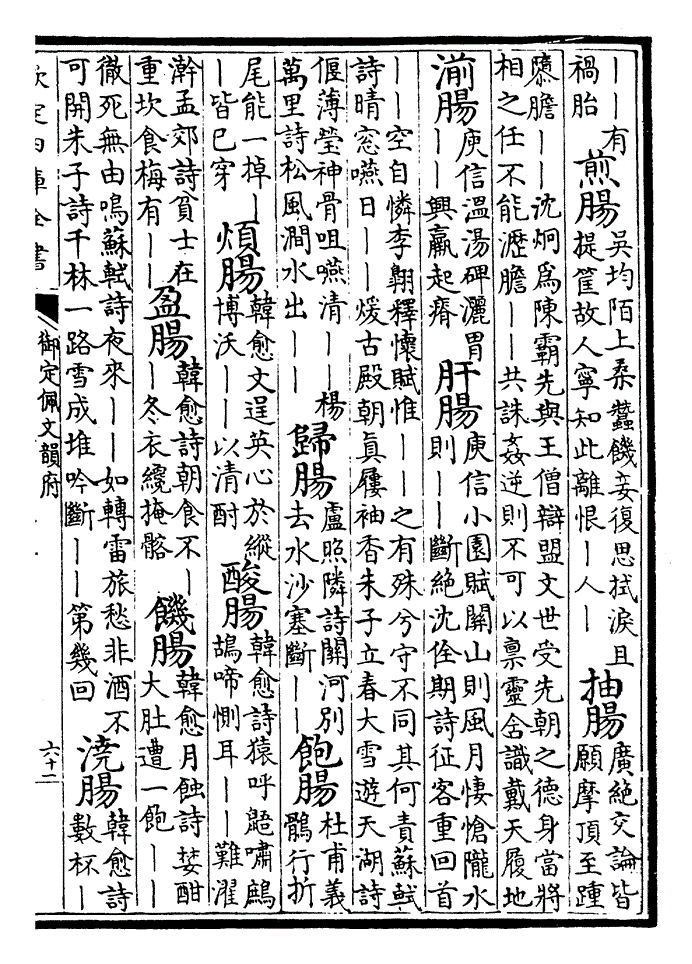 ||有禍胎 煎腸 吳均陌上桑蠶饑妾復思拭淚且提筐故人寧知此離恨|人| 抽腸 廣絶交論皆願摩頂至踵
隳膽||沈炯爲陳霸先與王僧辯盟文世受先朝之德身當將
相之任不能瀝膽||共誅姦逆則不可以稟靈含識戴天履地
湔腸 庾信溫湯碑灑胃||興羸起瘠 肝腸 庾信小園賦關山則風月悽愴隴水則||斷絶沈佺期詩征客重回首
||空自憐李翺釋懷賦惟||之有殊兮守不同其何責蘇軾
詩晴窓嚥日||煖古殿朝眞屨袖香朱子立春大雪遊天湖詩
偃薄瑩神骨咀嚥清||楊萬里詩松風澗水出|| 歸腸 盧照隣詩關河別去水沙塞斷|| 飽腸 杜甫義鶻行折
尾能一掉||皆已穿 煩腸 韓愈文逞英心於縱博沃||以清酎 酸腸 韓愈詩猿呼鼯嘯鷓鴣啼惻耳||難濯
澣孟郊詩貧士在重坎食梅有|| 盈腸 韓愈詩朝食不||冬衣纔掩骼 饑腸 韓愈月蝕詩婪酣大肚遭一飽||
徹死無由鳴蘇軾詩夜來||如轉雷旅愁非酒不可開朱子詩千林一路雪成堆吟斷||第幾回 澆腸 韓愈詩數杯|
欽定四庫全書 御定佩文韻府 六十二